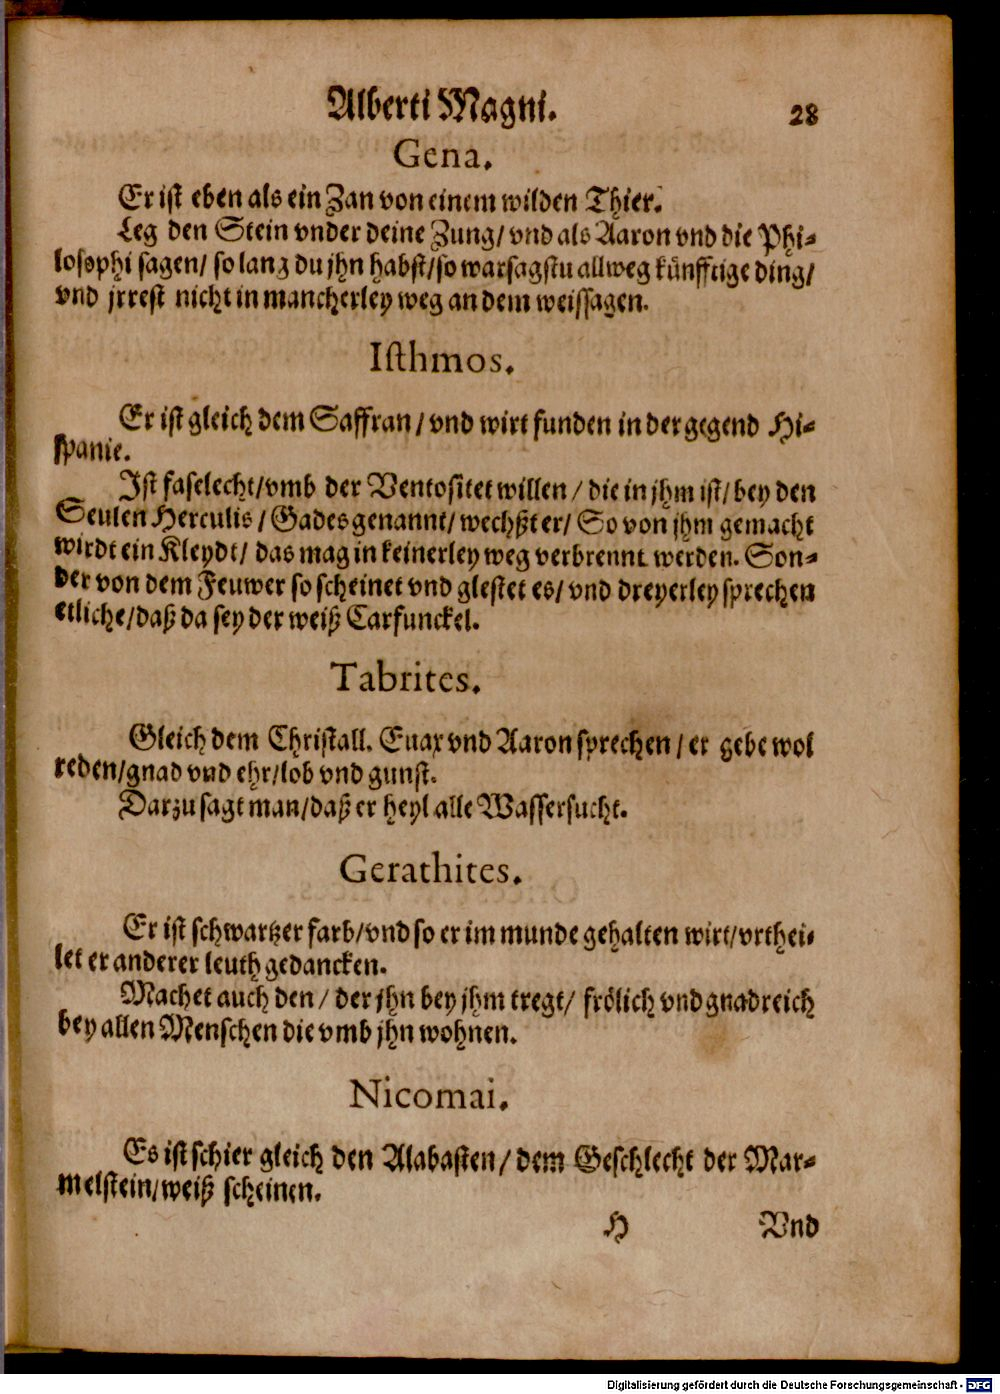 Alberti Magni. 28
Gena.
Er ist eben als ein Zan von einem wilden Thier.
Leg den Stein vnder deine Zung/ vnd als Aaron vnd die Phi-
losophi sagen/ so lang du jhn habst/ so warsagstu allweg künfftige ding/
vnd jrrest nicht in mancherley weg an dem weissagen.
Isthmos.
Er ist gleich dem Saffran/ vnd wirt funden in der gegend Hi-
spanie.
Ist faselecht/ vmb der Ventositet willen/ die in jhm ist/ bey den
Seulen Herculis/ Gades genannt/ wechßt er/ So von jhm gemacht
wirdt ein Kleydt/ das mag in keinerley weg verbrennt werden. Son-
der von dem Feuwer so scheinet vnd glestet es/ vnd dreyerley sprechen
etliche/ daß da sey der weiß Carfunckel.
Tabrites.
Gleich dem Christall. Euax vnd Aaron sprechen/ er gebe wol
reden/ gnad vnd ehr/ lob vnd gunst.
Darzu sagt man/ daß er heyl alle Wassersucht.
Gerathites.
Er ist schwartzer farb/ vnd so er im munde gehalten wirt/ vrthei-
let er anderer leuth gedancken.
Machet auch den/ der jhn bey jhm tregt/ frölich vnd gnadreich
bey allen Menschen die vmb jhn wohnen.
Nicomai.
Es ist schier gleich den Alabasten/ dem Geschlecht der Mar-
melstein/ weiß scheinen.
H Vnd
Digitalisierung gefördert durch die Deutsche Forschungsgemeinschaft - DFG